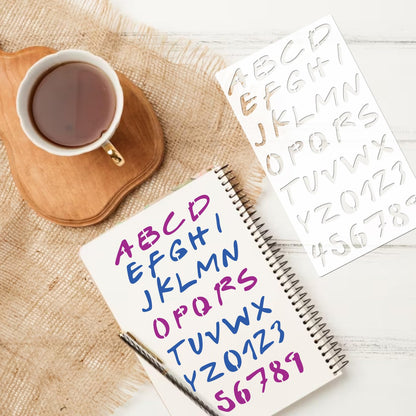 ABCD
EFGHI
JKLMN
OPQRS
TUVWX
YZ0123
56789
ABCD
EFGHI
JKLMN
OPQRS
TUVWX
YZ0123
456789